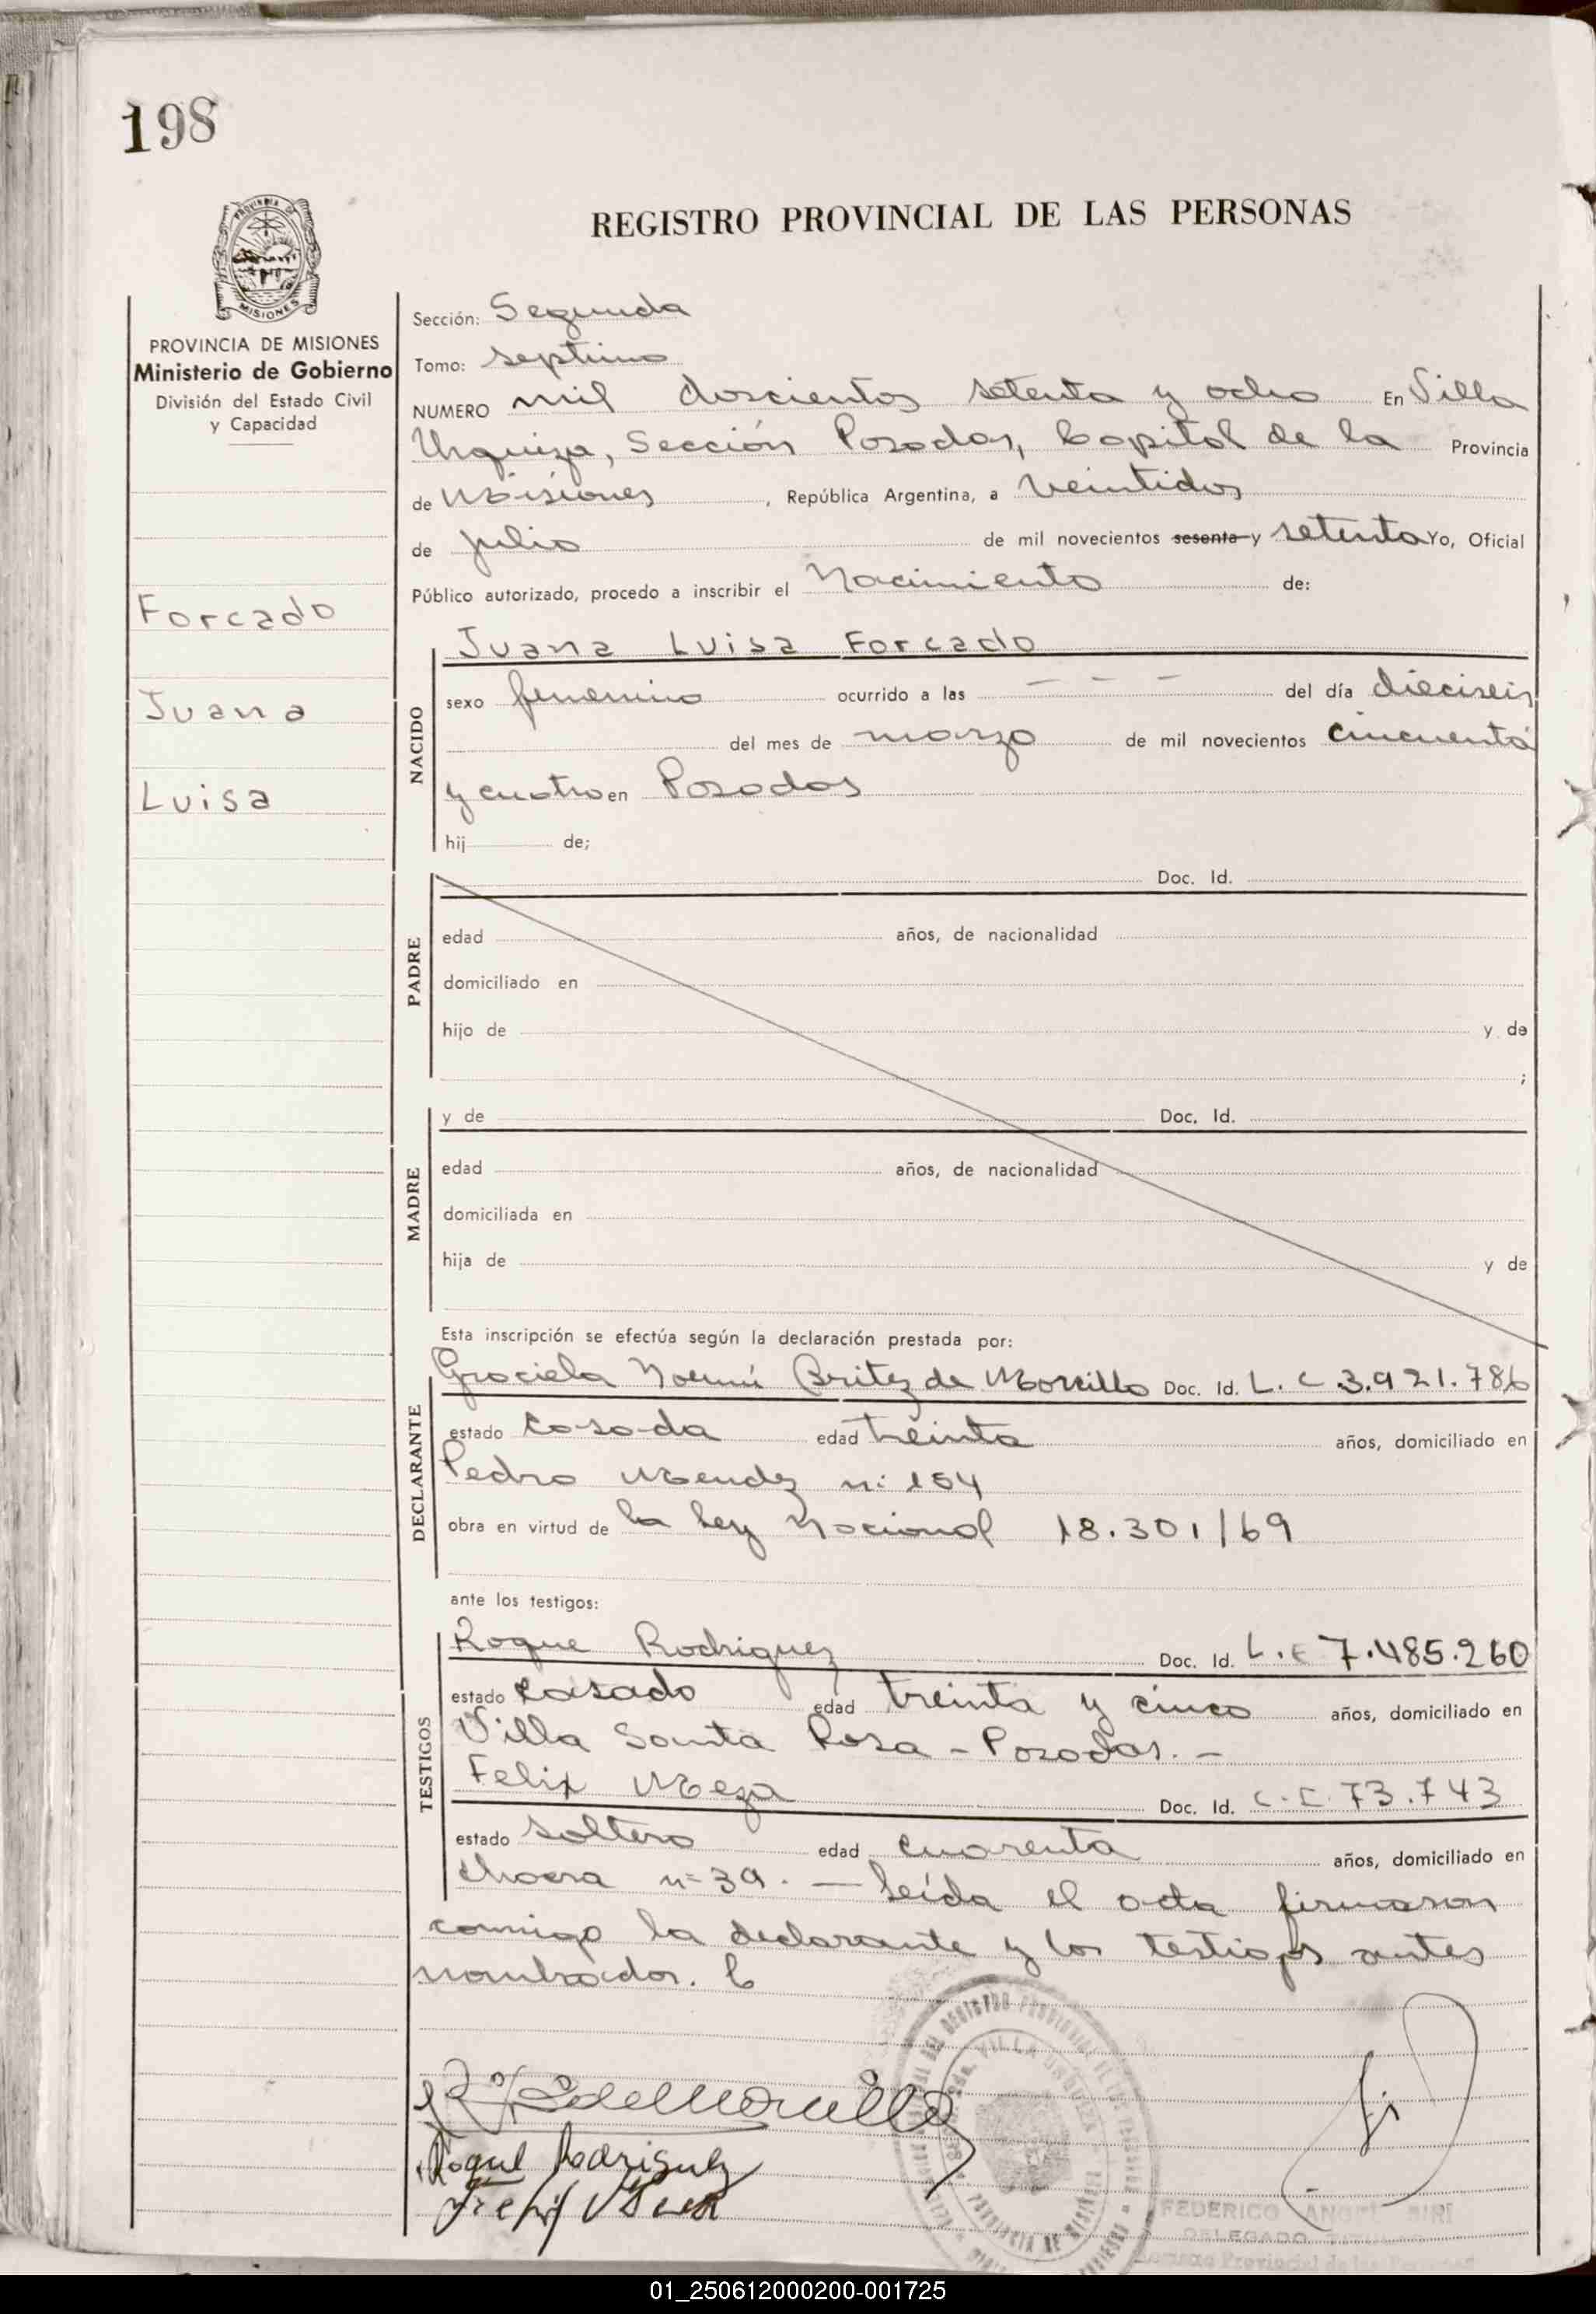 198
REGISTRO PROVINCIAL DE LAS PERSONAS
MISIONES
PROVINCIA DE MISIONES
Ministerio de Gobierno
División del Estado Civil
y Capacidad
Forcado
Juana
Luisa
Sección: Segunda
Tomo: septimo
NUMERO mil doscientos setenta y ocho En Villa
Urquiza, Sección Posadas, Capital de la Provincia
de Misiones, República Argentina, a veintidos
de julio de mil novecientos sesenta y setenta Yo, Oficial
Público autorizado, procedo a inscribir el Nacimiento de:
NACIDO
Juana Luisa Forcado
sexo femenino ocurrido a las - - - del día dieciseis
del mes de marzo de mil novecientos cincuenta
y cuatro en Posadas
hij de;
PADRE
Doc. Id.
edad años, de nacionalidad
domiciliado en
hijo de y de
;
MADRE
y de Doc. Id.
edad años, de nacionalidad
domiciliada en
hija de y de
Esta inscripción se efectúa según la declaración prestada por:
DECLARANTE
Graciela Noemí Britez de Morcillo Doc. Id. L. C 3.921.786
estado casada edad treinta años, domiciliado en
Pedro Mendez n: 154
obra en virtud de la ley Nacional 18.301/69
ante los testigos:
TESTIGOS
Roque Rodriguez Doc. Id. L. E 7.485.260
estado casado edad treinta y cinco años, domiciliado en
Villa Santa Rosa - Posadas. -
Felix Meza Doc. Id. C. I. 73.743
estado soltero edad cuarenta años, domiciliado en
n= 39. — Leída el acta firmaron
conmigo la declarante y los testigos antes
nombrados.
Roque Rodriguez
VILLA URQUIZA
PROVINCIA DE MISIONES
FEDERICO ANGEL
DELEGADO TITULAR
Provincial de las Personas
01_250612000200-001725